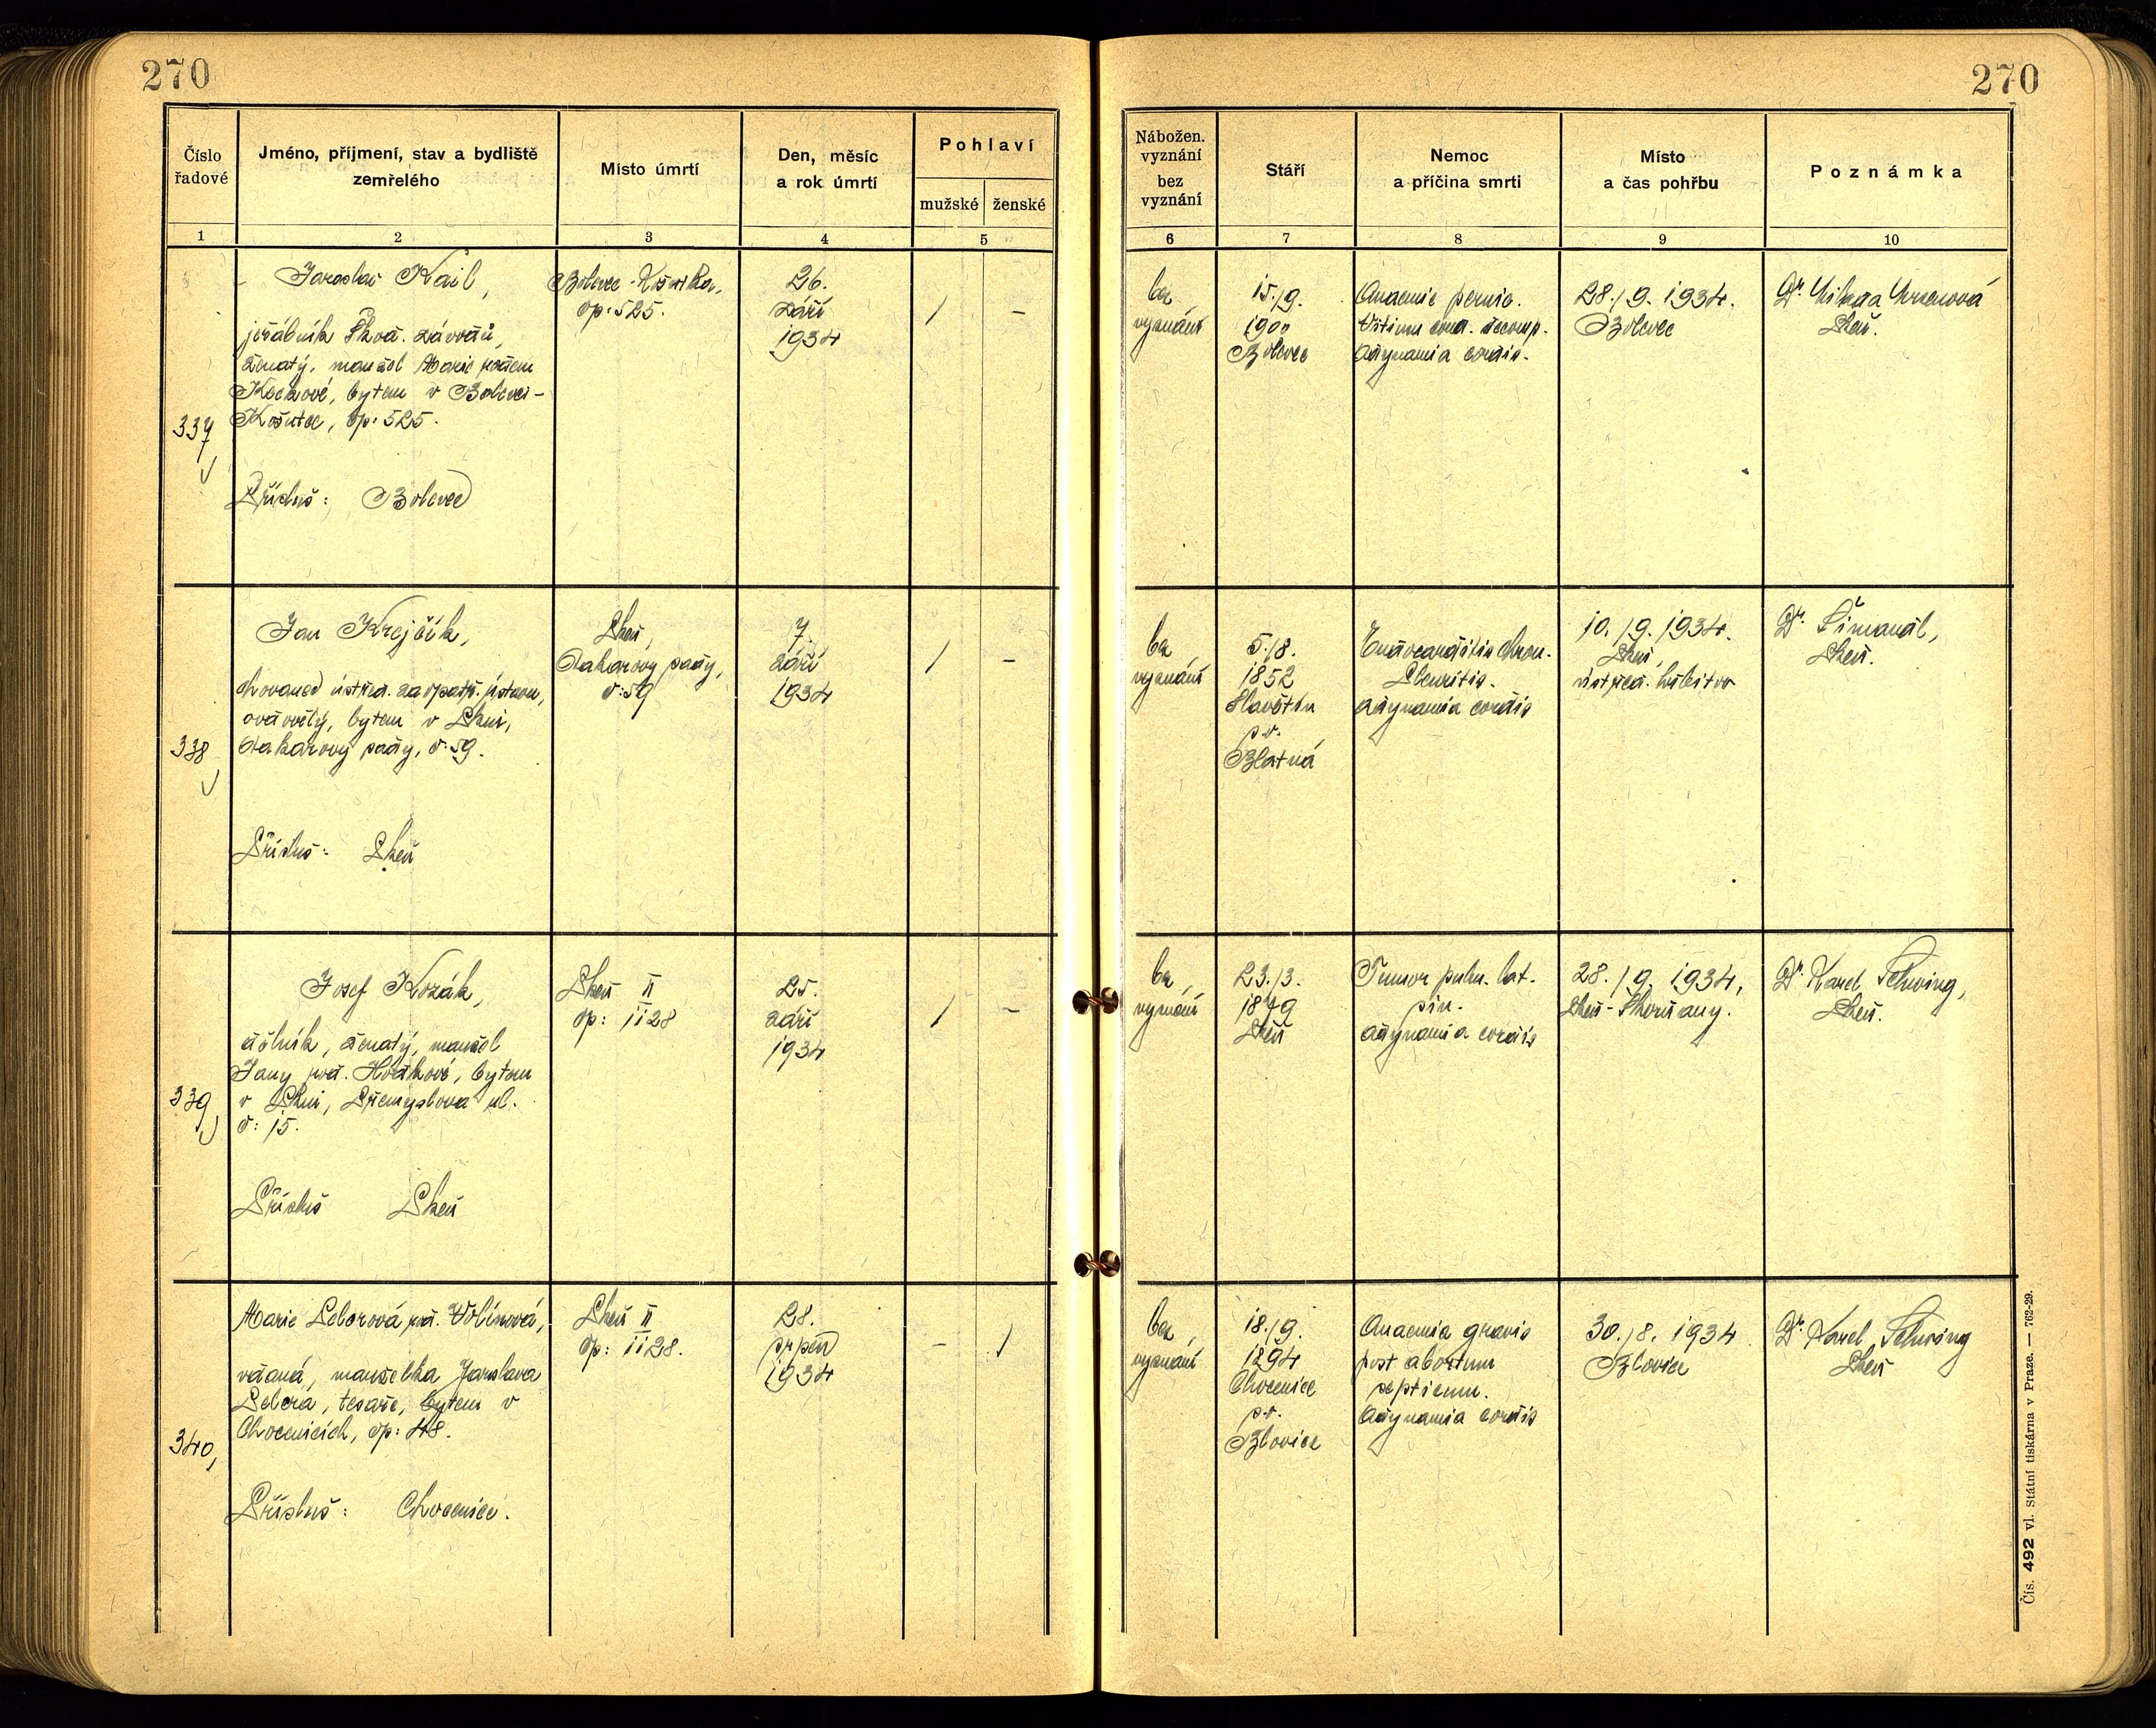 270
270
Číslo
řadové
Jméno, příjmení, stav a bydliště
zemřelého
Místo úmrtí
Den, měsíc
a rok úmrtí
Pohlaví
mužské
ženské
Nábožen.
vyznání
bez
vyznání
Stáří
Nemoc
a příčina smrti
Místo
a čas pohřbu
Poznámka
1
2
3
4
5
6
7
8
9
10
337
Jaroslav Kail,
jeřábník Škod. závodů,
ženatý, manžel Marie rozen
bytem v Bolevci-
Košutce, čp: 525.
Přísluš: Bolevec
Bolevec-Košutka,
čp: 525.
26.
září
1934
/
-
bez
vyznání
15./9.
1900
Bolevec
Anaemie pernic.
Vitium cord. decomp.
Adynamia cordis.
28./9. 1934.
Bolevec
Dr.
Plzeň.
338
Jan Krejčík,
chovanec ústřed. zaopatř. ústavu,
ovdovělý, bytem v Plzni,
sady, č: 59.
Přísluš: Plzeň
Plzeň,
sady,
č: 59
7.
září
1934
/
-
bez
vyznání
5./8.
1852
Hlavětín
p. o.
Blatná
Endocarditis chron.
Pleuritis.
Adynamia cordis
10./9. 1934.
Plzeň,
ústřed. hřbitov
Dr. Šimanál,
Plzeň.
339
Josef Kozák,
dělník, ženatý, manžel
Jany roz. bytem
v Plzni, Přemyslova ul.
č: 15.
Přísluš Plzeň
Plzeň II
čp: 1128
25.
září
1934
/
-
bez
vyznání
23./3.
1879
Plzeň
Tumor pulm. lat.
sin.
Adynamia cordis
28./9. 1934,
Plzeň-Skvrňany.
Dr. Karel Fehring,
Plzeň.
340
Marie roz. Volínová,
vdaná, manželka Jaroslava
tesaře, bytem v
Chocenicích, čp: 48.
Přísluš: Chocenice.
Plzeň II
čp: 1128.
28.
srpen
1934
-
/
bez
vyznání
18./9.
1894
Chocenice
p. o.
Blovice
Anaemia gravis
post abortum
septicum.
Adynamia cordis
30./8. 1934
Blovice
Dr. Karel Fehring
Plzeň
Čís. 492 vl. Státní tiskárna v Praze. — 762-29.